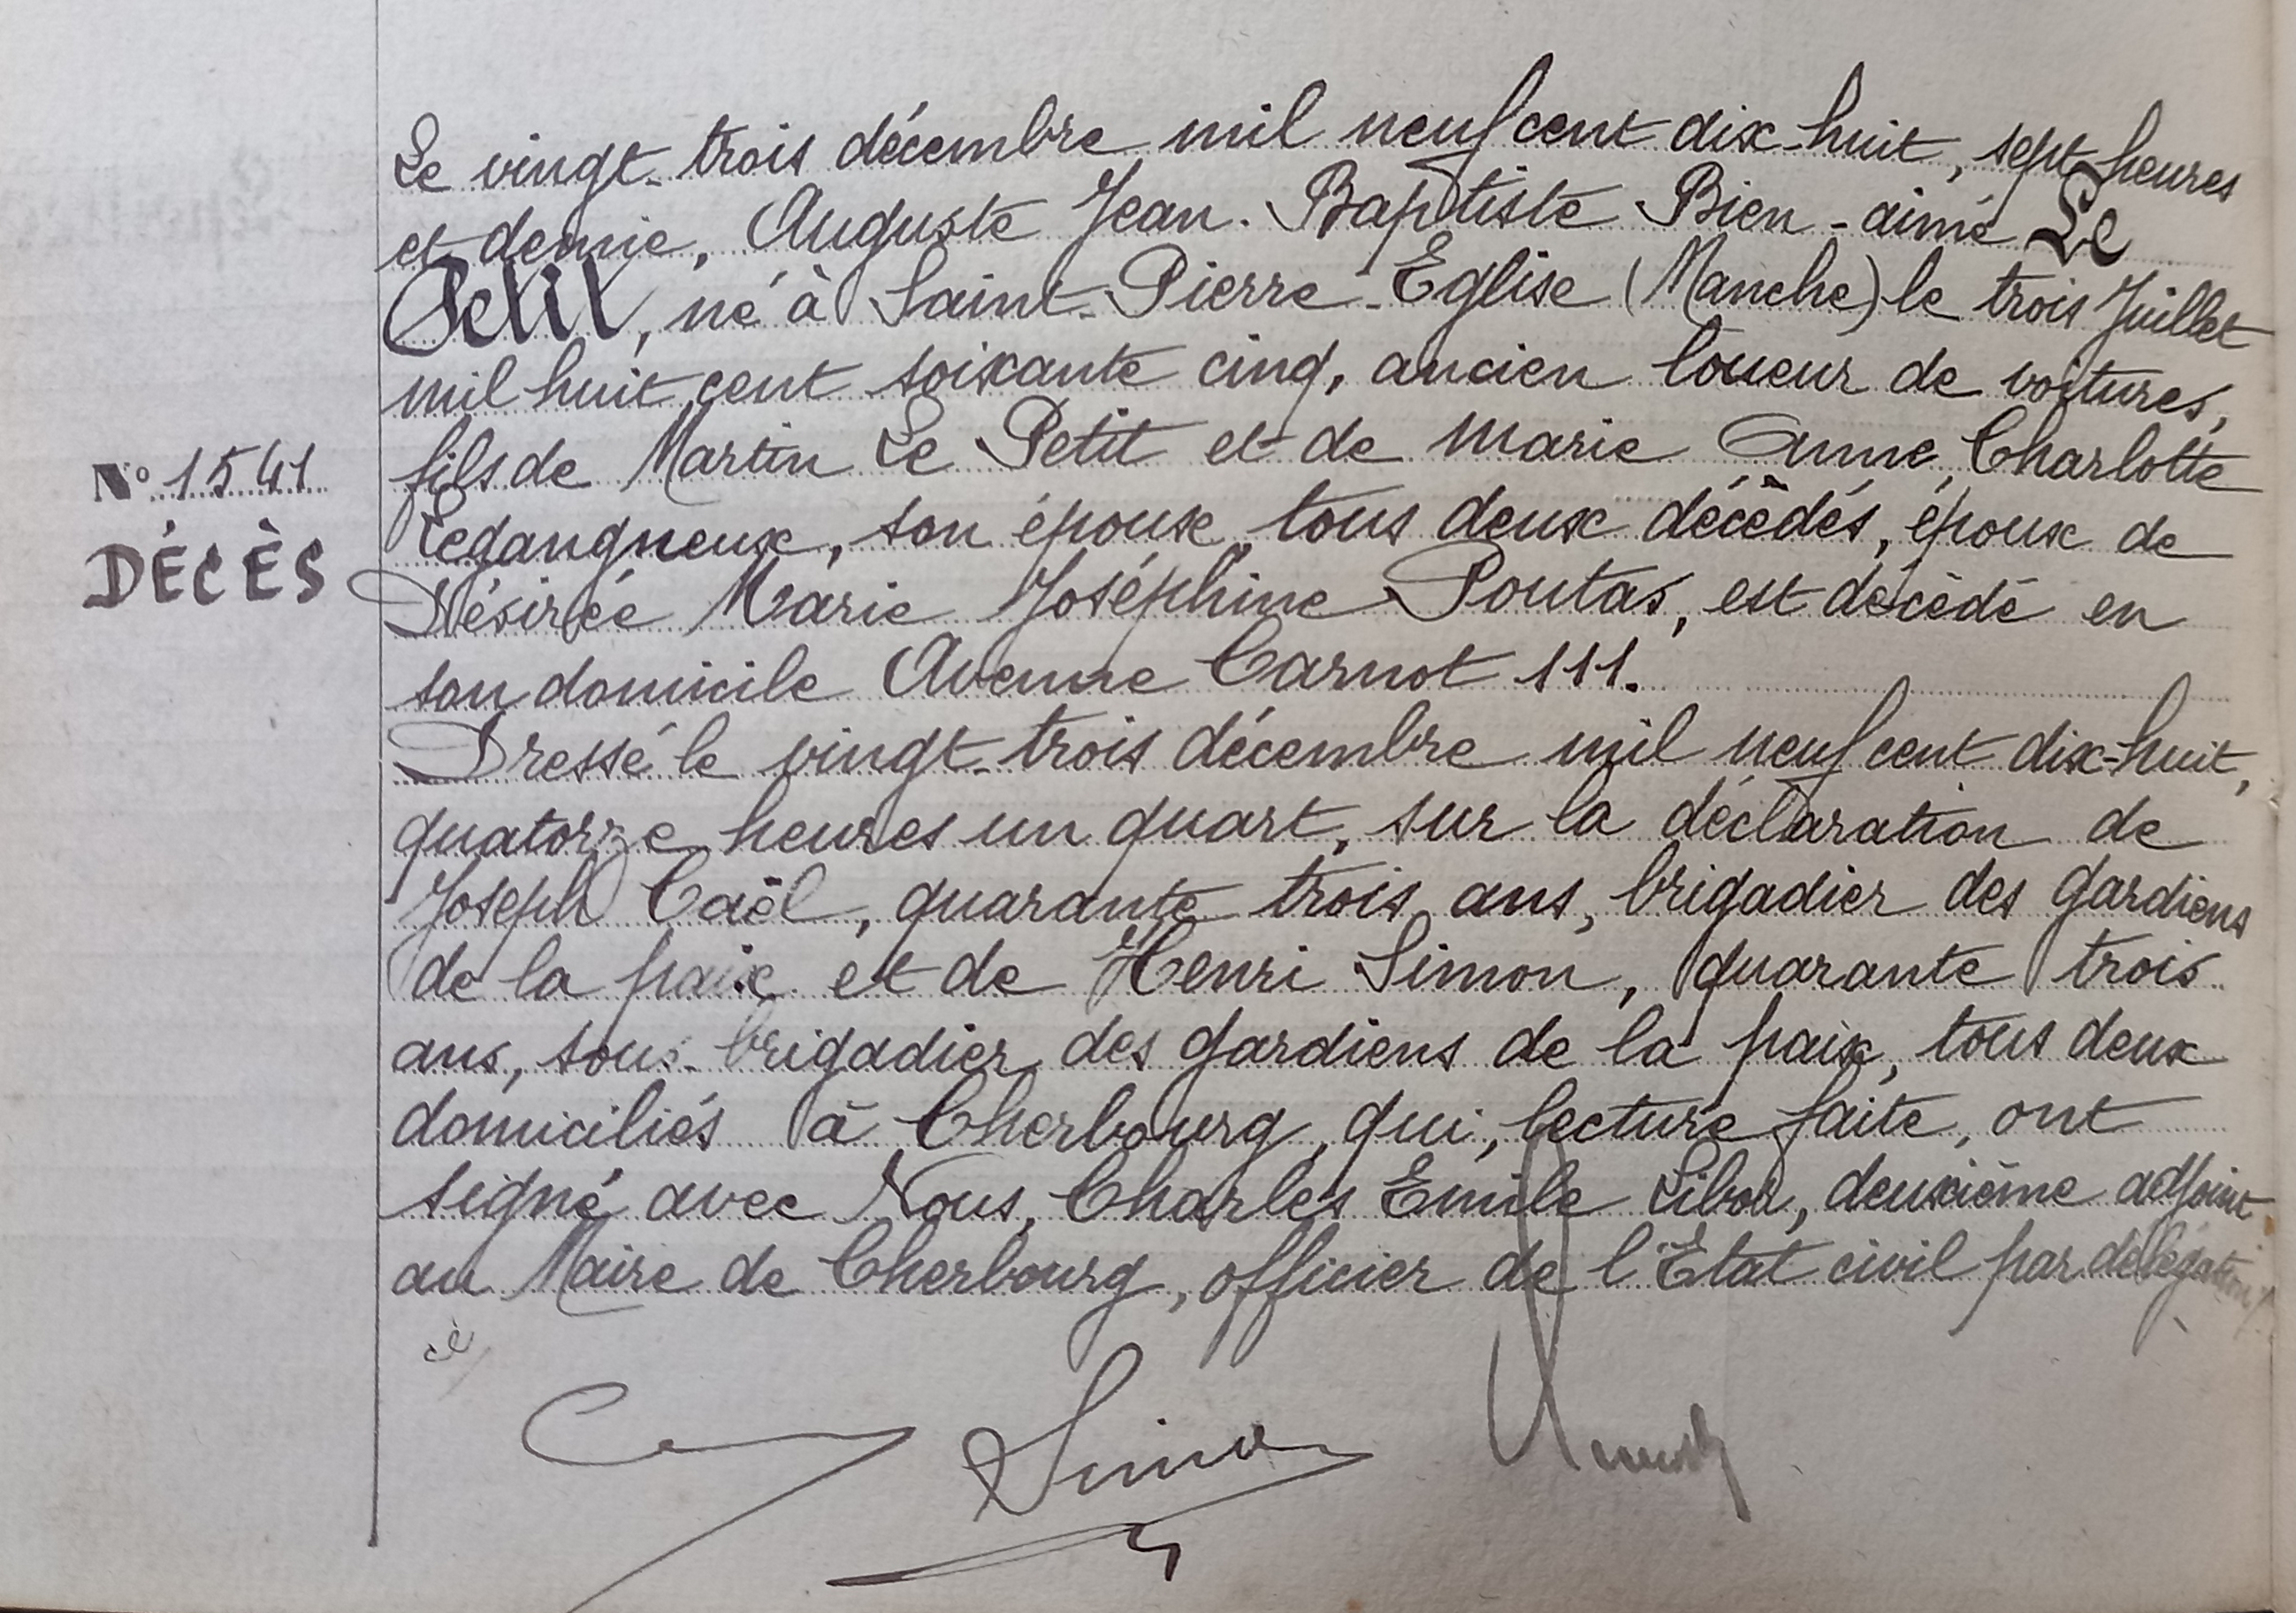 Le vingt-trois décembre mil neuf cent dix-huit, sept heures
et demie, Auguste Jean-Baptiste Bien-aimé Le
Petit, né à Saint-Pierre-Eglise (Manche) le trois Juillet
mil huit cent soixante cinq, ancien loueur de voitures,
fils de Martin Le Petit et de Marie Anne Charlotte
Legangneux, son épouse, tous deux décédés, époux de
Désirée Marie Joséphine Poutas, est décédé en
son domicile Avenue Carnot 111.
N° 1541
DÉCÈS
Dressé le vingt-trois décembre mil neuf cent dix-huit,
quatorze heures un quart, sur la déclaration de
Joseph Caël, quarante trois ans, brigadier des gardiens
de la paix et de Henri Simon, quarante trois
ans, sous-brigadier des gardiens de la paix, tous deux
domiciliés à Cherbourg, qui, lecture faite, ont
signé avec Nous, Charles Emile Libor, deuxième adjoint
au Maire de Cherbourg, officier de l'Etat civil par délégation
Simon